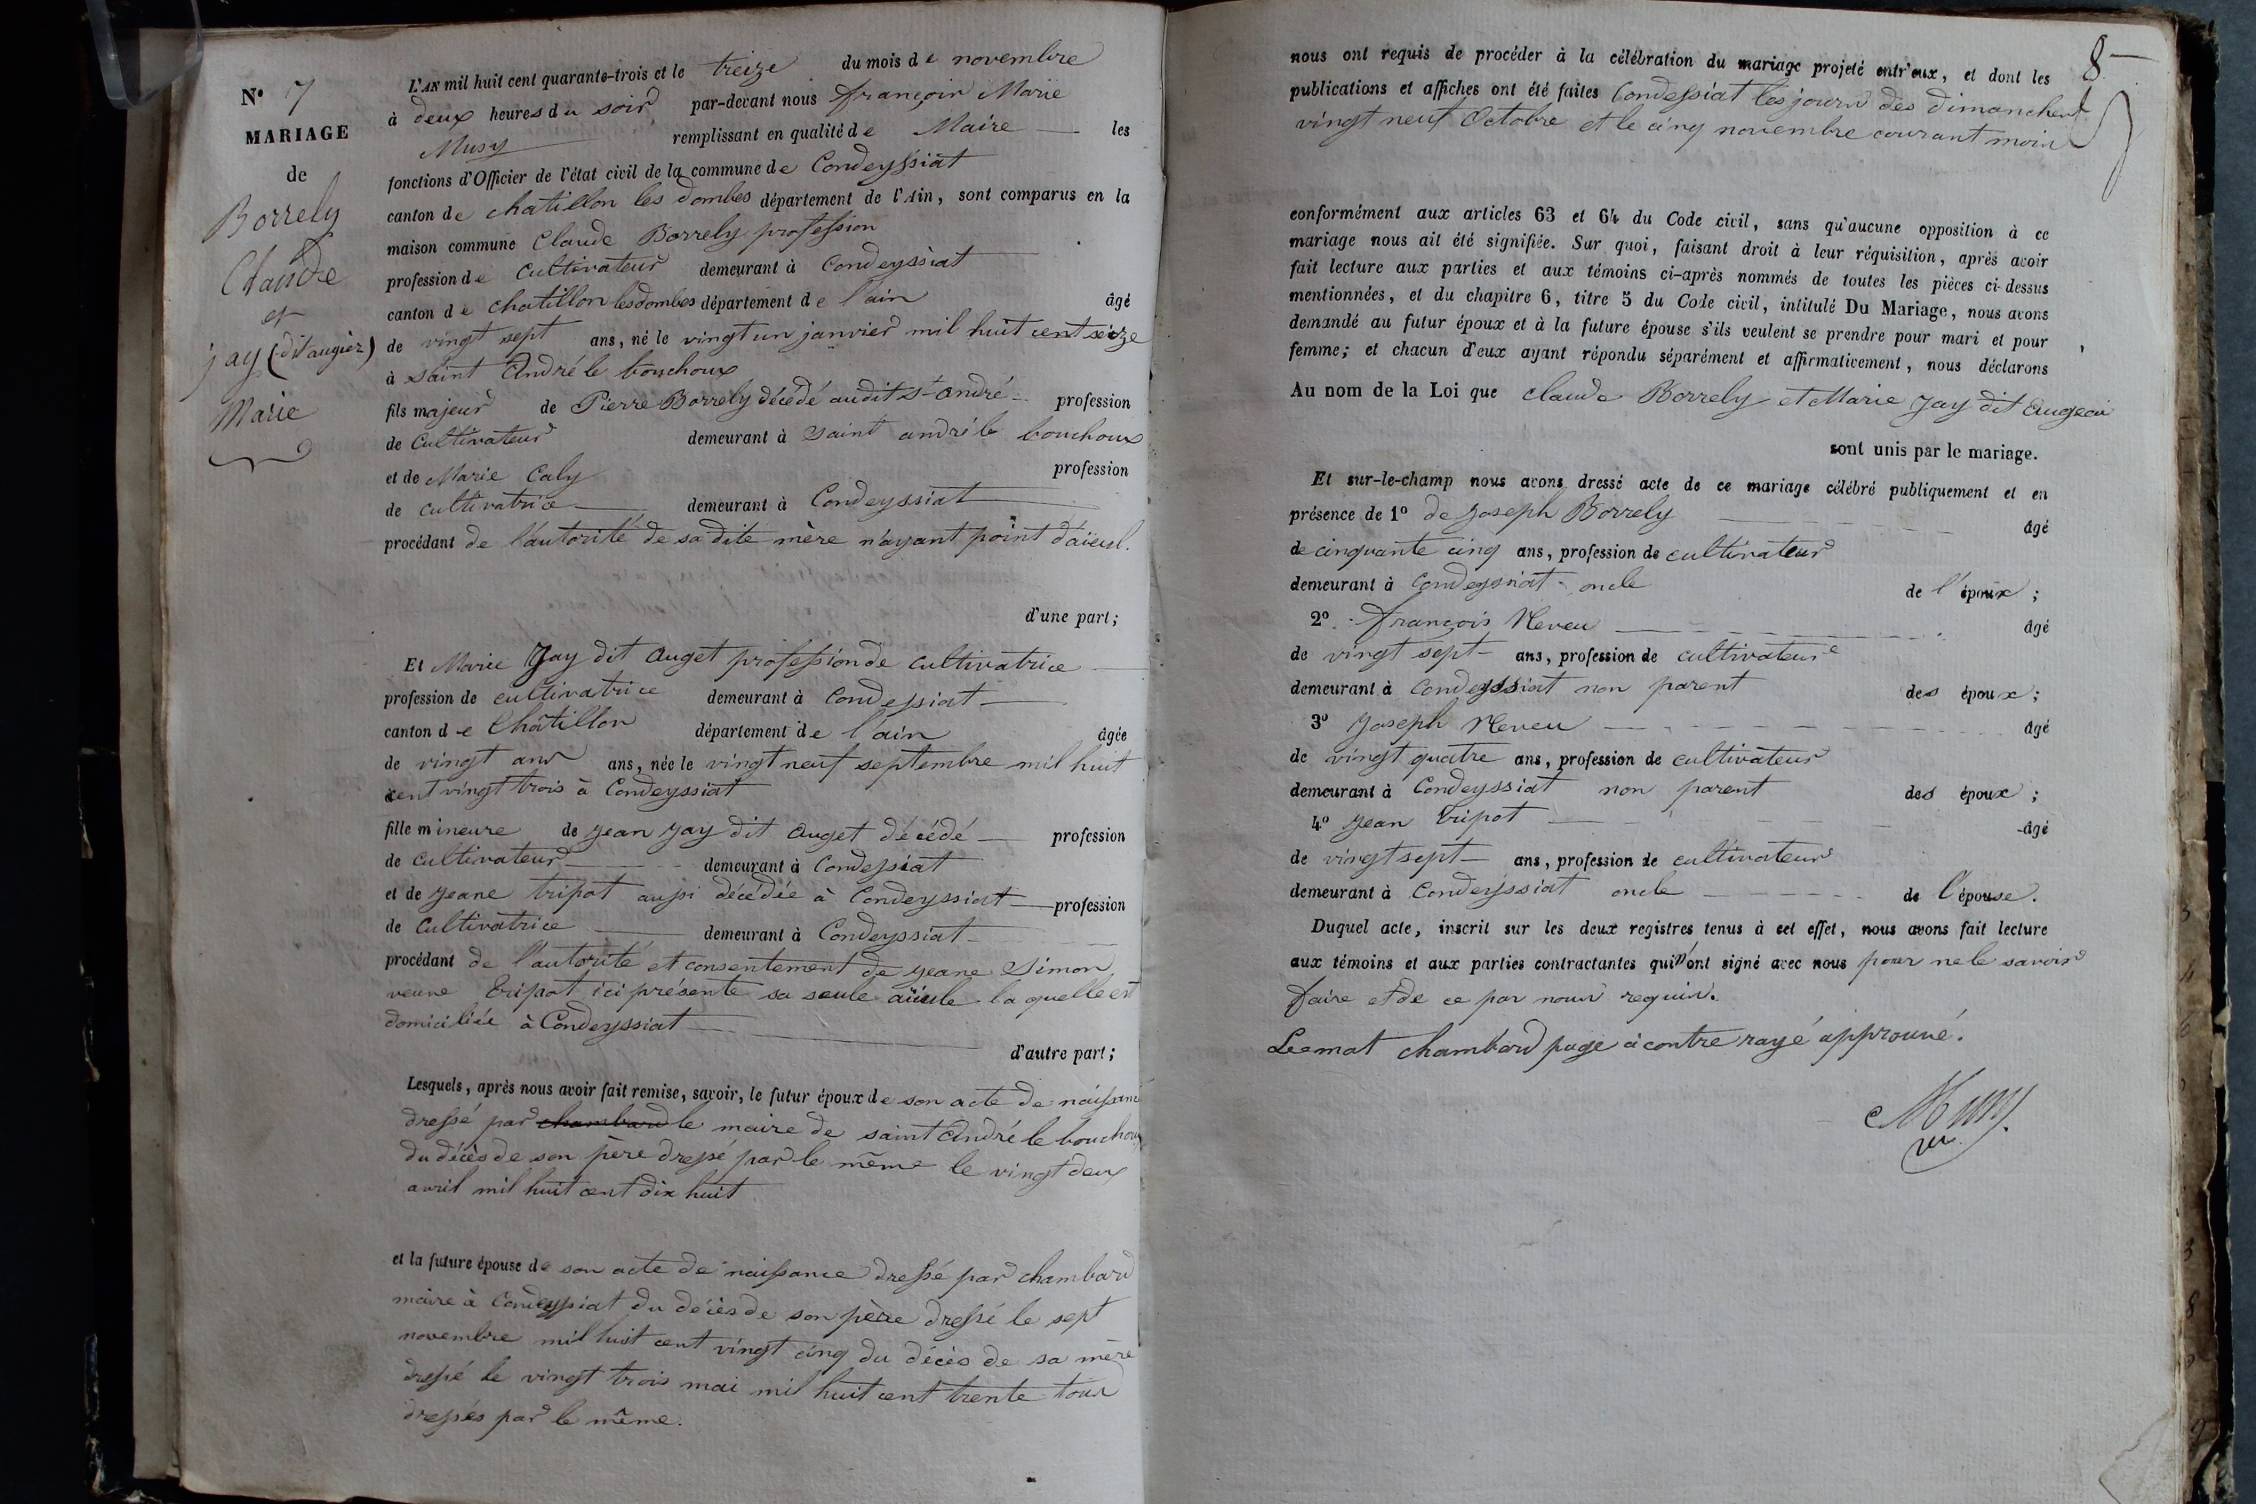 N° 7
MARIAGE
de
Borrely
Claude
et
jay (dit augier)
Marie
L'AN mil huit cent quarante-trois et le treize du mois de novembre
à deux heures du soir par-devant nous françois Marie
Musy remplissant en qualité de Maire les
fonctions d'Officier de l'état civil de la commune de Condeyssiat
canton de chatillon les dombes département de l'Ain, sont comparus en la
maison commune Claude Borrely profession
profession de cultivateur demeurant à Condeyssiat
canton de chatillon les dombes département de l'ain âgé
de vingt sept ans, né le vingt un janvier mil huit cent seize
à saint André le bouchoux
fils majeur de Pierre Borrely décédé audit St andré profession
de cultivateur demeurant à saint andré le bouchoux
et de Marie Caly profession
de cultivatrice demeurant à Condeyssiat
procédant de l'autorité de sa dite mère n'ayant point d'aïeul.
d'une part;
Et Marie Jay dit auget profession de cultivatrice
profession de cultivatrice demeurant à Condessiat
canton de Châtillon département de l'ain âgée
de vingt ans ans, née le vingt neuf septembre mil huit
cent vingt trois à Condeyssiat
fille mineure de jean jay dit auget décédé profession
de cultivateur demeurant à Condessiat
et de jeane tripot aussi décédée à Condeyssiat profession
de Cultivatrice demeurant à Condeyssiat
procédant de l'autorité et consentement de jeane Simon
veuve tripot ici présente sa seule aïeule la quelle est
domiciliée à Condeyssiat
d'autre part;
Lesquels, après nous avoir fait remise, savoir, le futur époux de son acte de naissance
dressé par chambard le maire de saint André le bouchoux
du décès de son père dressé par le même le vingt deux
avril mil huit cent dix huit
et la future épouse de son acte de naissance dressé par chambard
maire à Condeyssiat du décès de son père dressé le sept
novembre mil huit cent vingt cinq du décès de sa mère
dressé le vingt trois mai mil huit cent trente tous
dressés par le même.
8
nous ont requis de procéder à la célébration du mariage projeté entr'eux, et dont les
publications et affiches ont été faites Condessiat les jours des dimanches
vingt neuf Octobre et le cinq novembre courant mois
conformément aux articles 63 et 64 du Code civil, sans qu'aucune opposition à ce
mariage nous ait été signifiée. Sur quoi, faisant droit à leur réquisition, après avoir
fait lecture aux parties et aux témoins ci-après nommés de toutes les pièces ci-dessus
mentionnées, et du chapitre 6, titre 5 du Code civil, intitulé Du Mariage, nous avons
demandé au futur époux et à la future épouse s'ils veulent se prendre pour mari et pour
femme; et chacun d'eux ayant répondu séparément et affirmativement, nous déclarons
Au nom de la Loi que claude Borrely et Marie Jay dit
sont unis par le mariage.
Et sur-le-champ nous avons dressé acte de ce mariage célébré publiquement et en
présence de 1° de Joseph Borrely âgé
de cinquante cinq ans, profession de cultivateur
demeurant à Condeyssiat oncle de l'époux;
2° françois Neveu âgé
de vingt sept ans, profession de cultivateur
demeurant à Condeyssiat non parent des époux;
3° Joseph Neveu âgé
de vingt quatre ans, profession de cultivateur
demeurant à Condeyssiat non parent des époux;
4° jean tripot âgé
de vingt sept ans, profession de cultivateur
demeurant à Condeyssiat oncle de l'épouse.
Duquel acte, inscrit sur les deux registres tenus à cet effet, nous avons fait lecture
aux témoins et aux parties contractantes qui n'ont signé avec nous pour ne le savoir
faire et de ce par nous requis.
Le mot chambard page à contre rayé approuvé.
Musy